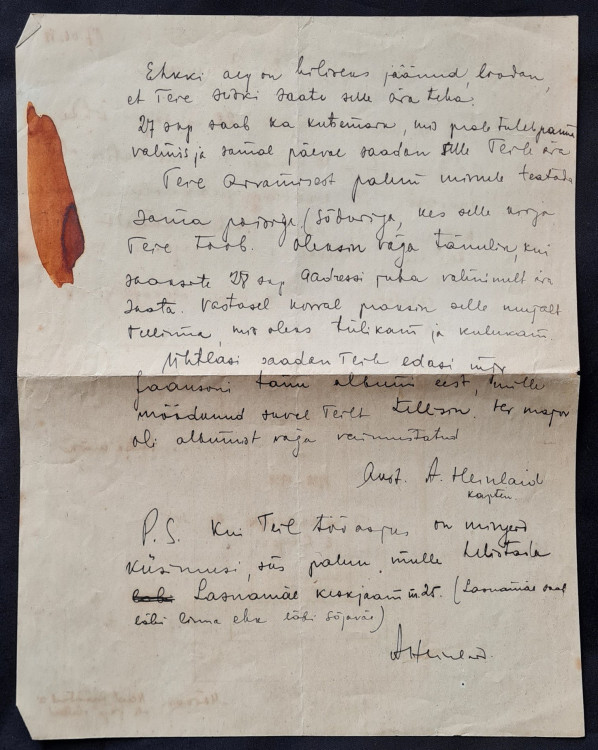 Ehkki aeg on hiliseks jäänud, loodan,
et Teie siiski saate selle ära teha.
27 sep saab ka kutsemära, mis peale tuleb panna
valmis ja samal päeval saadan selle Teile ära
Teie arvamisest palun minule teatada
sama (sõduriga, kes selle kirja
Teie toob. Oleksin väga tänulik, kui
saaksite 28 sep juba valmimelt ära
saata. Vastasel korral peaksin selle mujalt
tellima, mis oleks tülikam ja kulukam.
Ühtlasi saadan Teile edasi mjr
Jaansoni tänu albumi eest, mille
möödunud suvel Teilt tellisin. Hr major
oli albumist väga vaimustatud
Aust. A. Heinlaid
kapten.
P.S. Kui Teil töö asjus on mingeid
küsimusi, siis palun mulle helistada
Lasnamäe keskjaam nr 25. (Lasnamäe saab
läbi linna ehk läbi sõjaväe)
AHeinlaid.